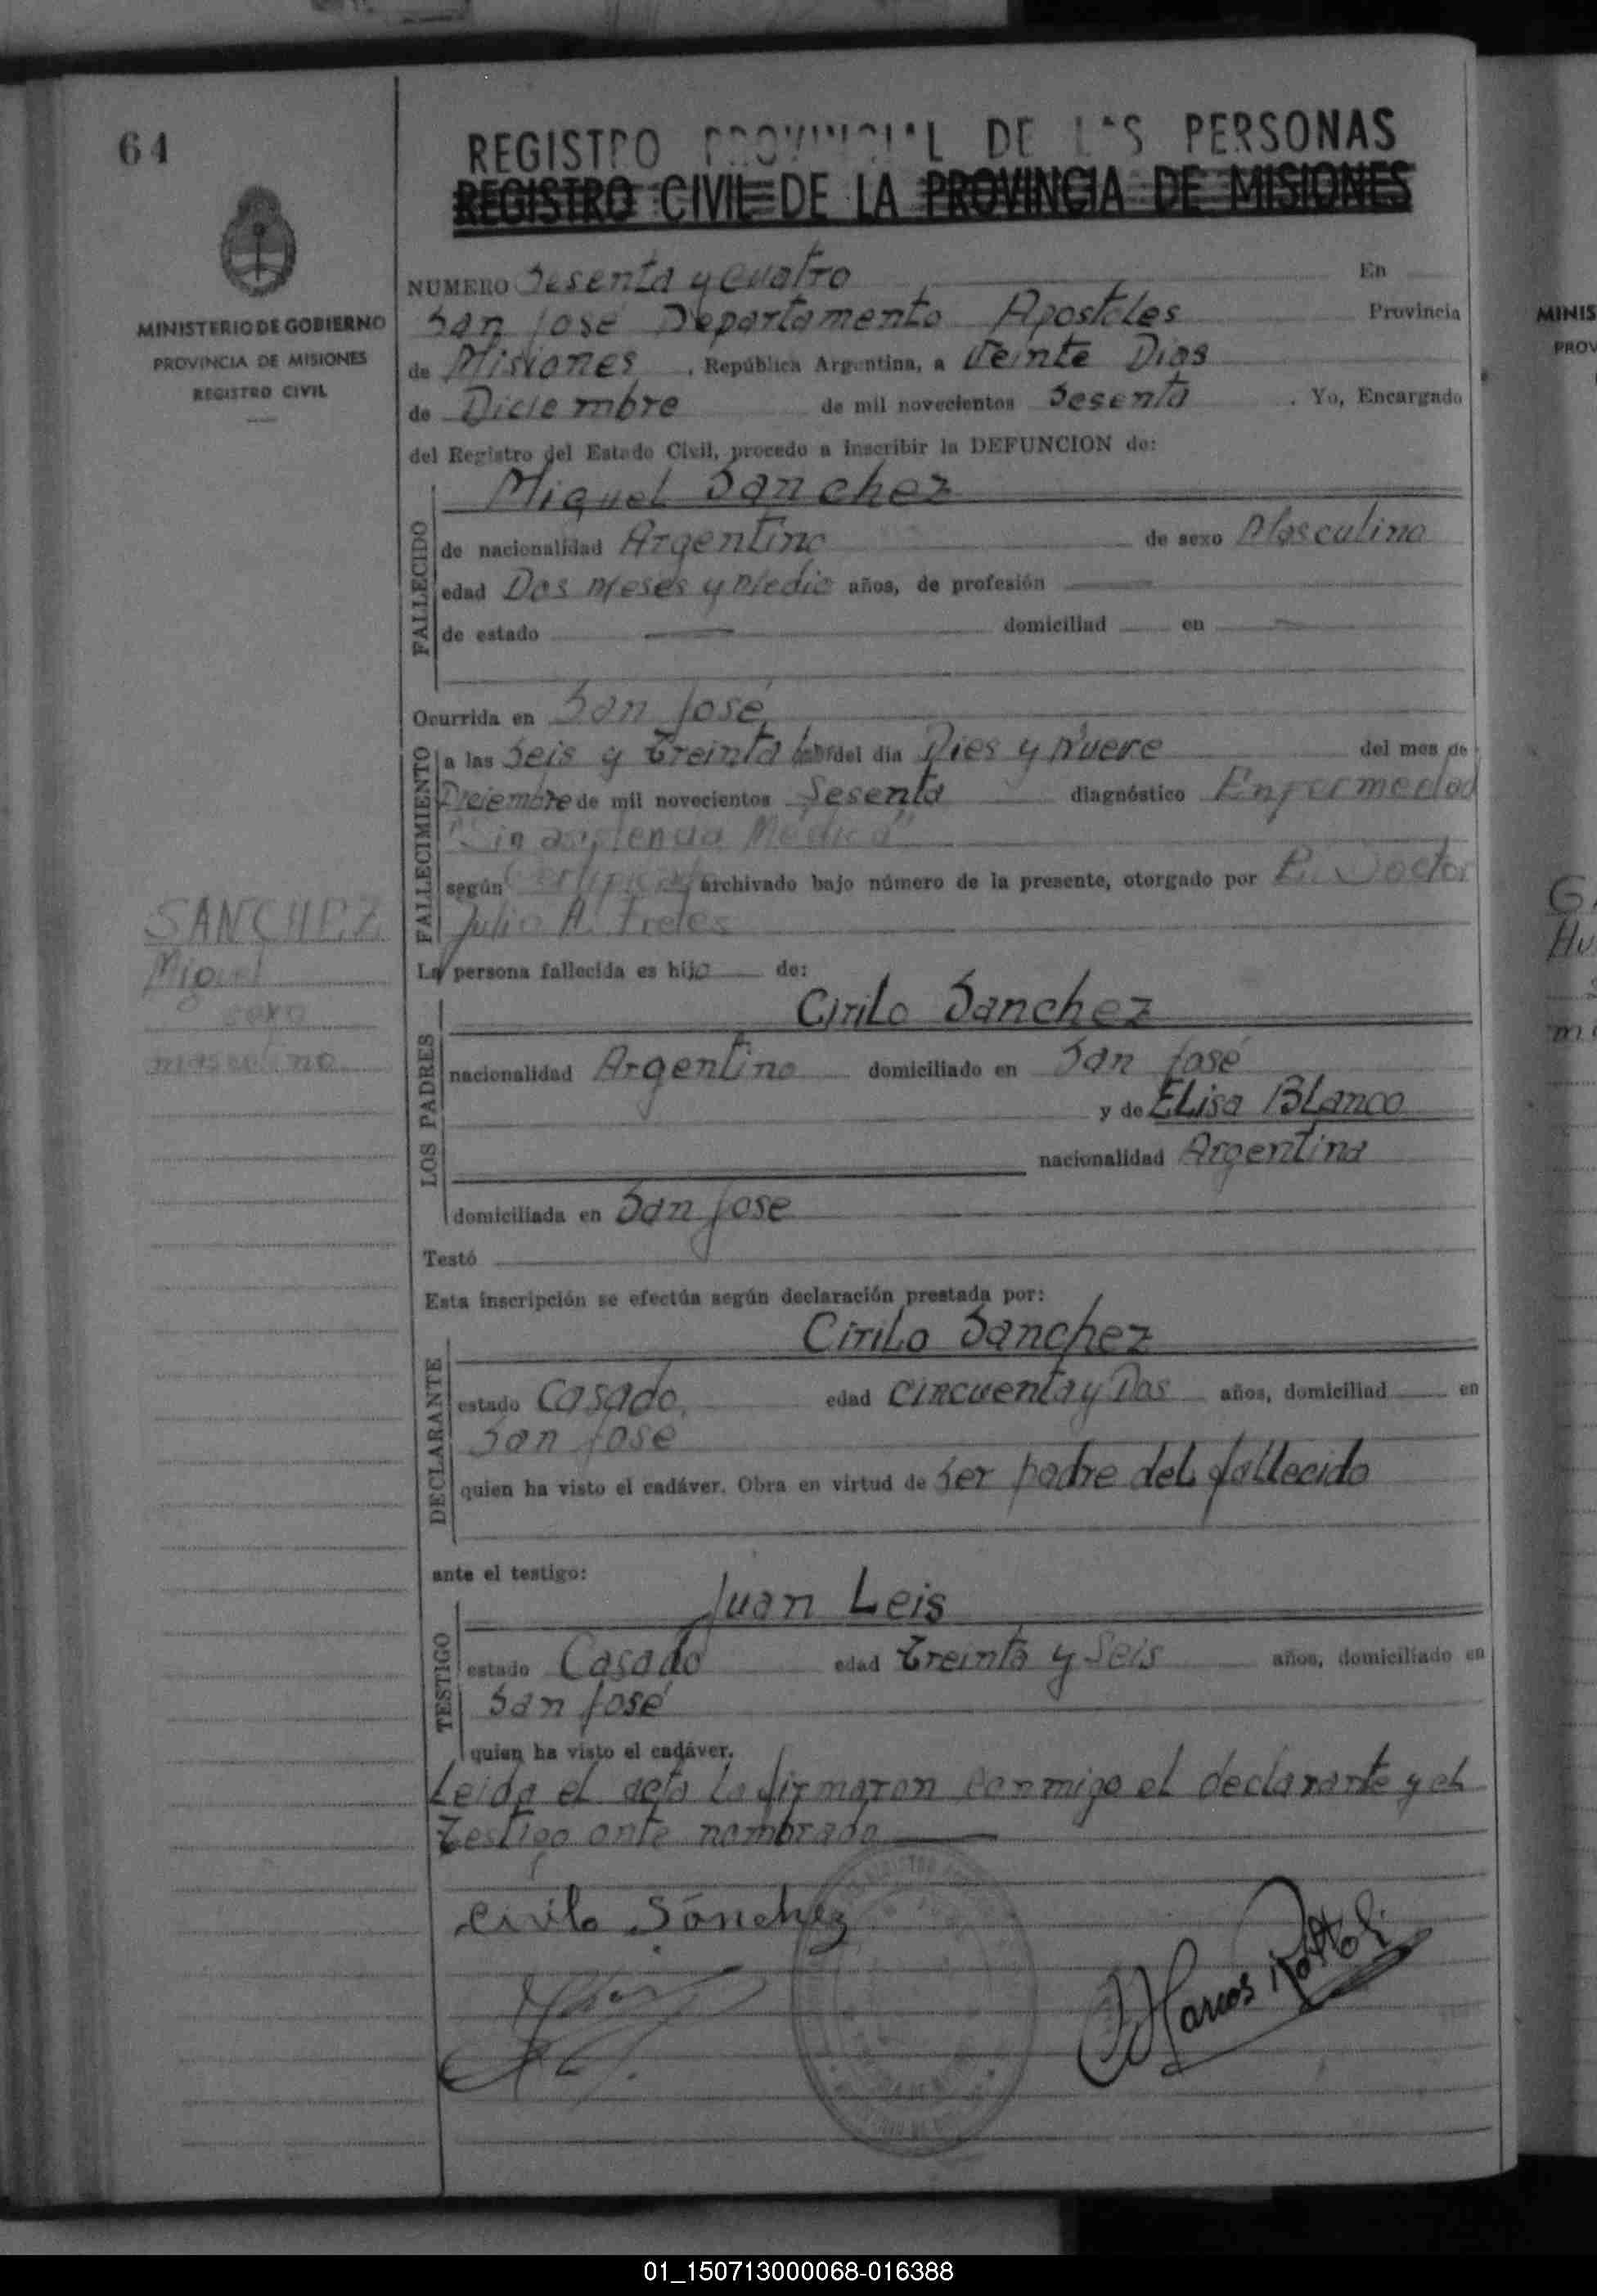 64
REGISTRO PROVINCIAL DE LAS PERSONAS
REGISTRO CIVIL DE LA PROVINCIA DE MISIONES
MINISTERIO DE GOBIERNO
PROVINCIA DE MISIONES
REGISTRO CIVIL
NUMERO Sesenta y Cuatro En
San José Departamento Apostoles Provincia
de Misiones, República Argentina, a Veinte Dias
de Diciembre de mil novecientos Sesenta. Yo, Encargado
del Registro del Estado Civil, procedo a inscribir la DEFUNCION de:
Miguel Sanchez
FALLECIDO
de nacionalidad Argentino de sexo Masculino
edad Dos Meses y Medio años, de profesión
de estado domiciliad en
Ocurrida en San José
FALLECIMIENTO
a las Seis y Treinta horas del día Dies y Nueve del mes de
Diciembre de mil novecientos Sesenta diagnóstico Enfermedad
"Sin asistencia Medica"
según Certificado archivado bajo número de la presente, otorgado por El Doctor
Julio A. Fretes
SANCHEZ
Miguel
sexo
masculino
La persona fallecida es hijo de:
Cirilo Sanchez
LOS PADRES
nacionalidad Argentino domiciliado en San José
y de Elisa Blanco
nacionalidad Argentina
domiciliada en San Jose
Testó
Esta inscripción se efectúa según declaración prestada por:
Cirilo Sanchez
DECLARANTE
estado Casado, edad Cincuenta y Dos años, domiciliad en
San Jose
quien ha visto el cadáver. Obra en virtud de Ser padre del fallecido
ante el testigo:
Juan Leis
TESTIGO
estado Casado edad Treinta y Seis años, domiciliado en
San José
quien ha visto el cadáver.
Leida el acta la firmaron conmigo el declarante y el
Testigo ante nombrado
Cirilo Sánchez
Marcos
MINIS
PROV
01_150713000068-016388